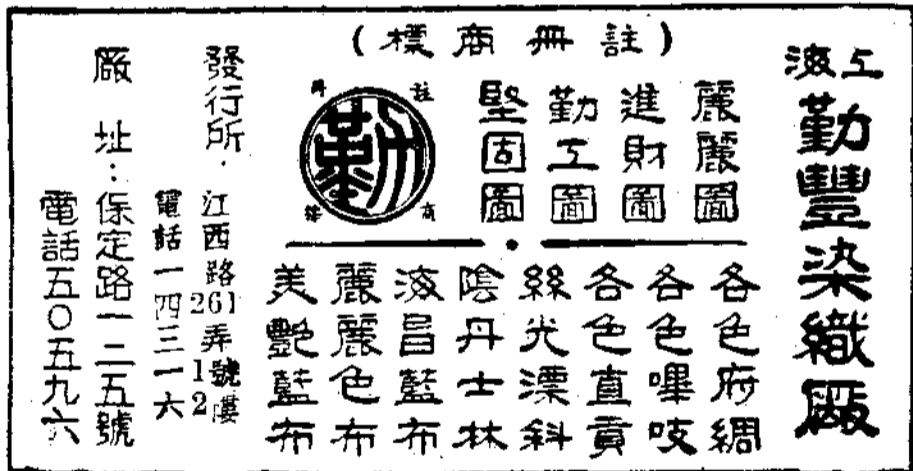 上海勤豐染織廠
(註冊商標)
麗麗圖
進財圖
勤工圖
堅固圖
註冊商標
勤
各色府綢
各色嗶吱
各色直貢
絲光漂斜
陰丹士林
海昌藍布
麗麗色布
美艷藍布
發行所．江西路261弄1號2樓
電話一四三一六
廠址：保定路一二五號
電話五〇五九六